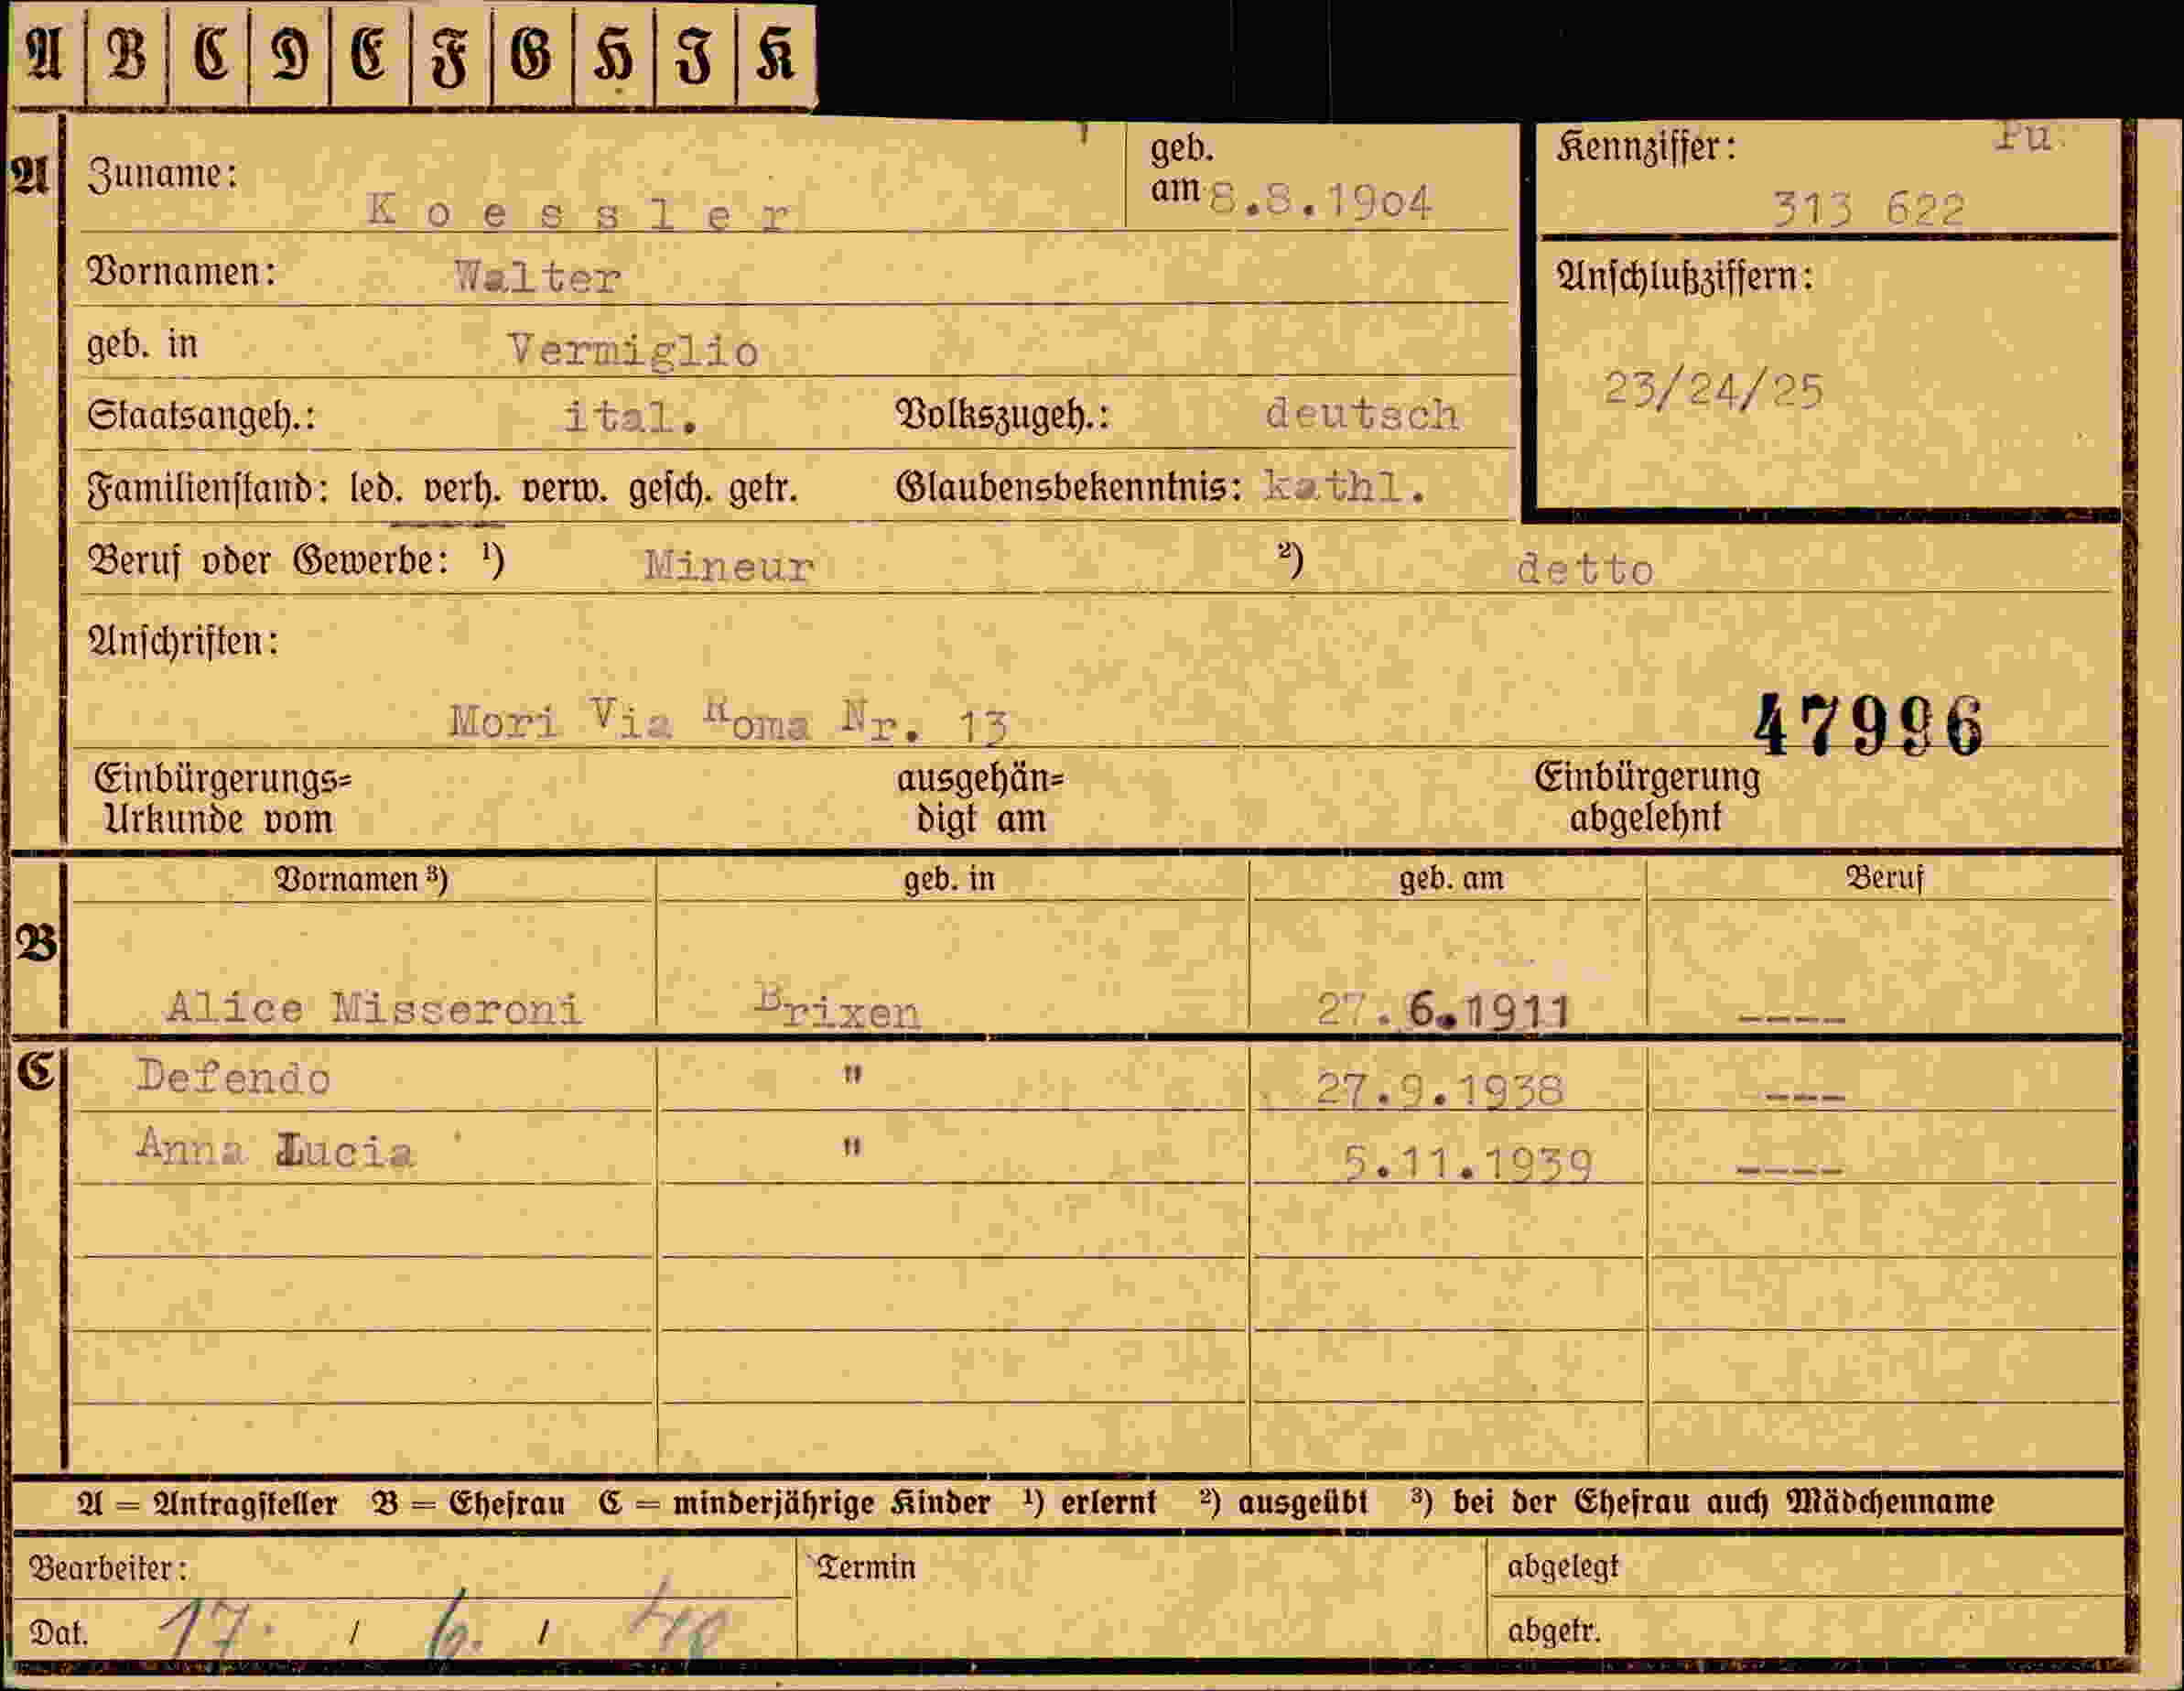 A B C D E F G H I K
A Zuname: Koessler geb. am 8.8.1904 Kennziffer: Pu. 313 622
Vornamen: Walter Anschlußziffern:
geb. in Vermiglio 23/24/25
Staatsangeh.: ital. Volkszugeh.: deutsch
Familienstand: led. verh. verw. gesch. getr. Glaubensbekenntnis: kathl.
Beruf oder Gewerbe: ¹) Mineur ²) detto
Anschriften:
Mori Via Roma Nr. 13 47996
Einbürgerungs= ausgehän= Einbürgerung
Urkunde vom digt am abgelehnt
Vornamen ³) geb. in geb. am Beruf
B
Alice Misseroni Brixen 27.6.1911 ----
C Defendo " 27.9.1938 ---
Anna Lucia " 5.11.1939 ----
A = Antragsteller B = Ehefrau C = minderjährige Kinder ¹) erlernt ²) ausgeübt ³) bei der Ehefrau auch Mädchenname
Bearbeiter: Termin abgelegt
Dat. 17. / 6. / 40 abgetr.